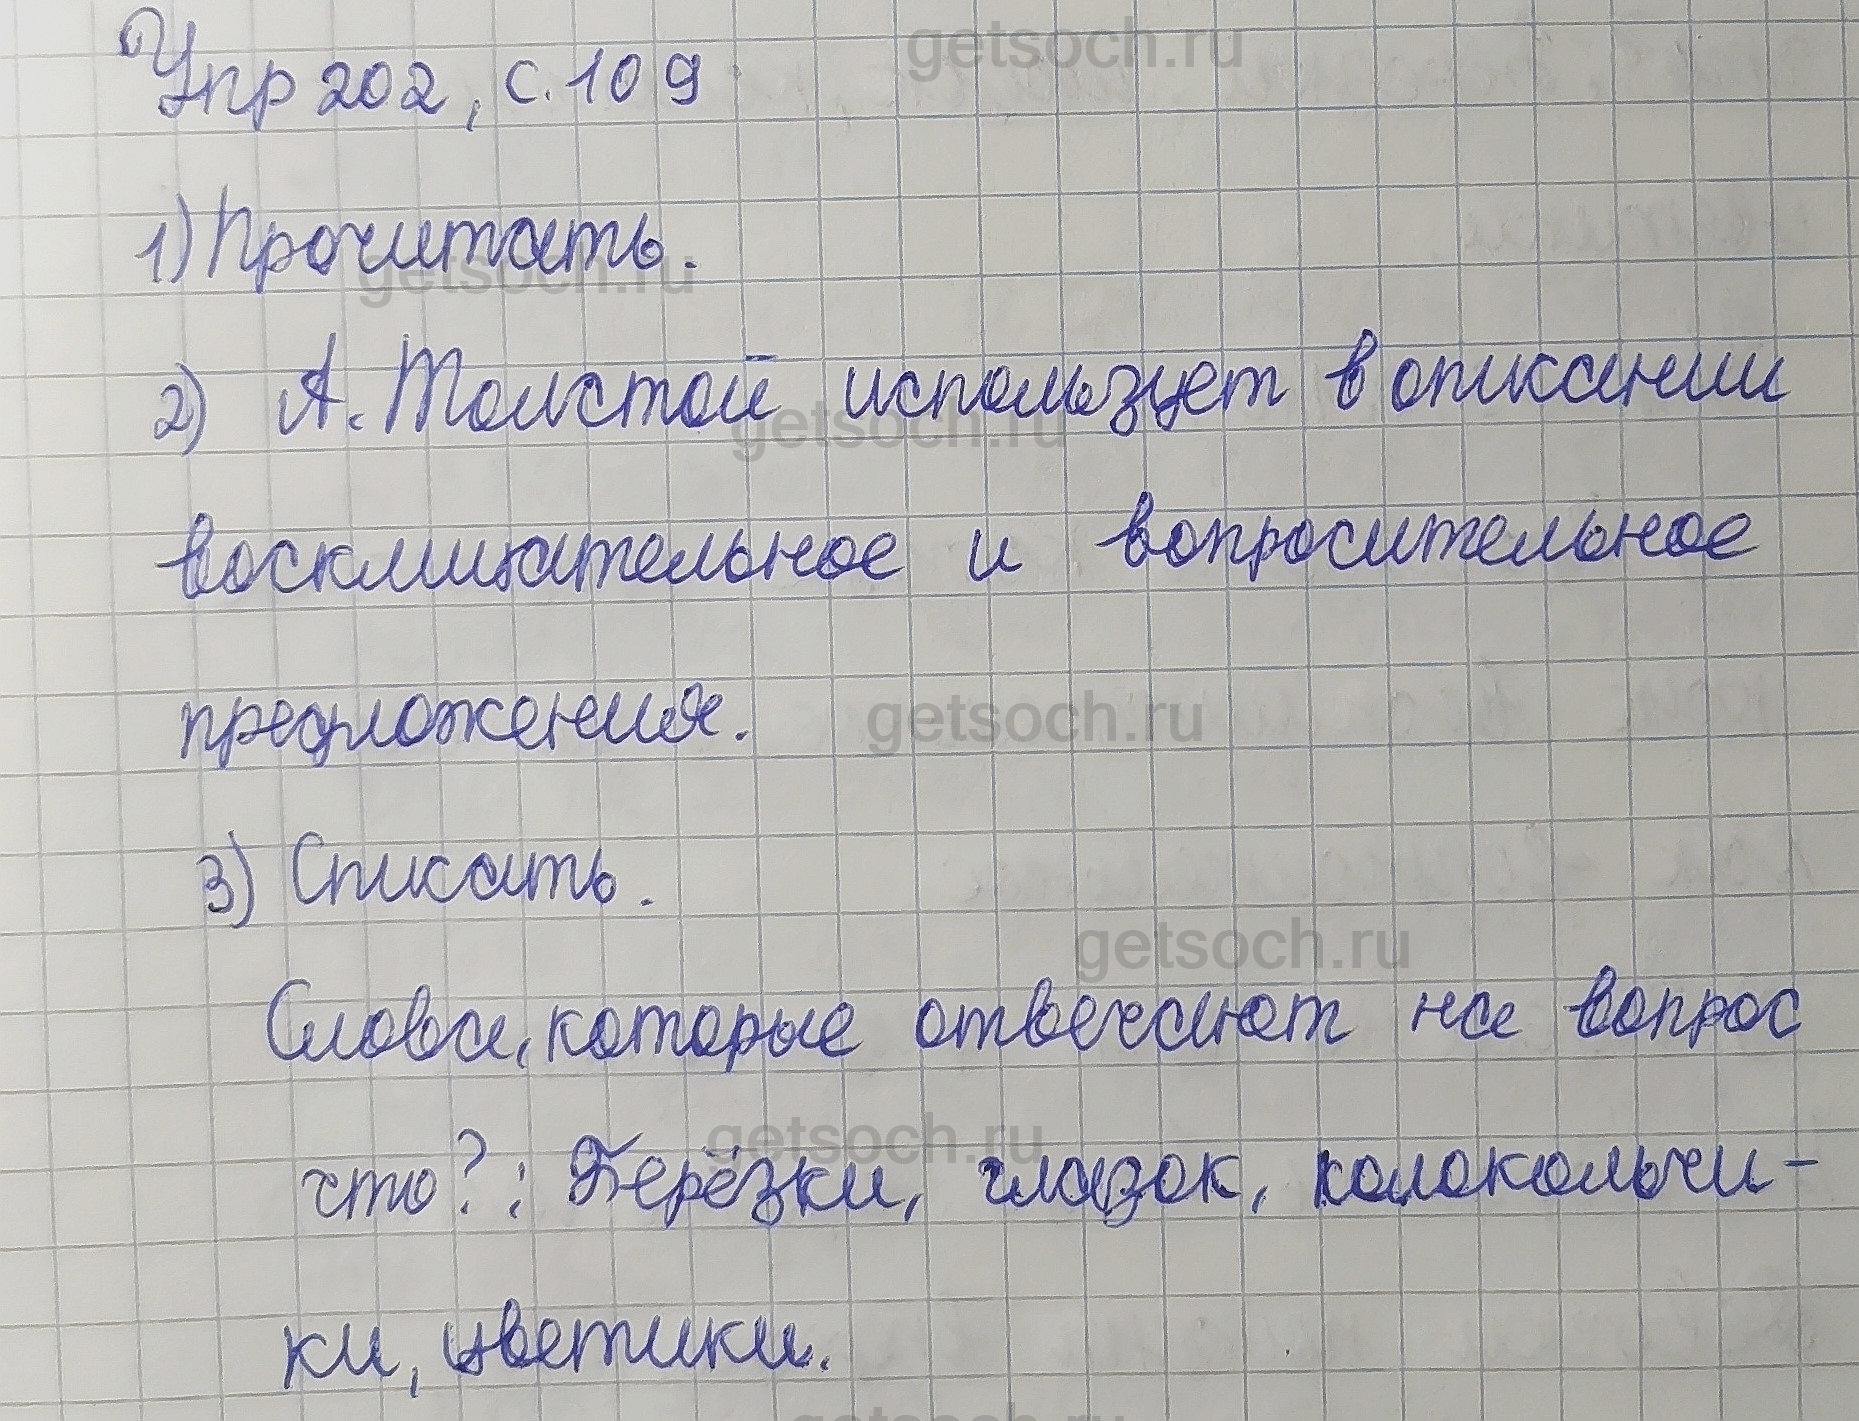 getsoch.ru
Упр 202, с. 109
1) Прочитать.
getsoch.ru
2) А. Толстой использует в описании
getsoch.ru
восклицательное и вопросительное
предложения.
getsoch.ru
3) Списать.
getsoch.ru
Слова, которые отвечают на вопрос
getsoch.ru
что?: Берёзки, глазок, колокольчи-
ки, цветики.
getsoch.ru